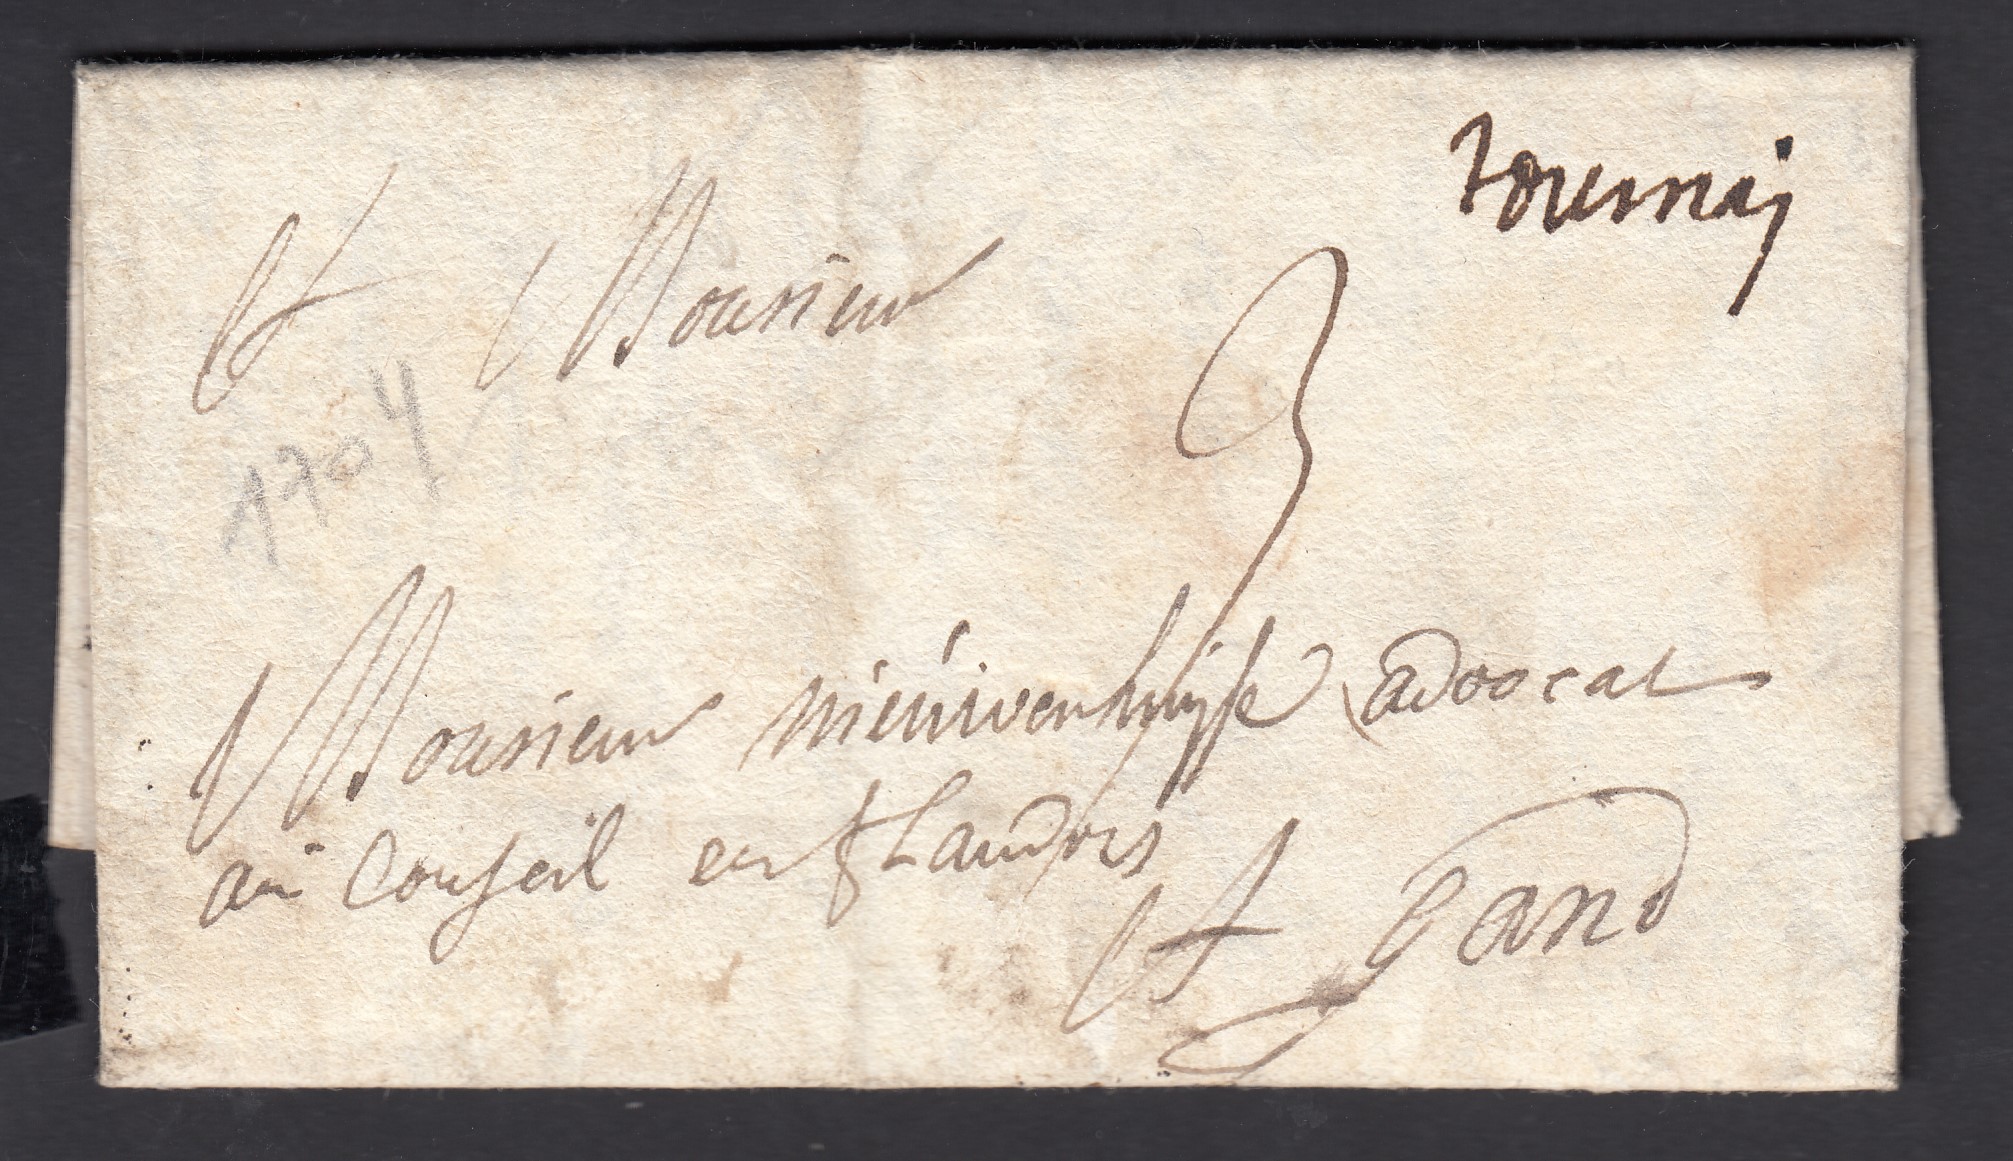 tournaij
A Monsieur
3
1704
Monsieur nieúwenhuijse advocat
aú Conseil en flandres
A Gand